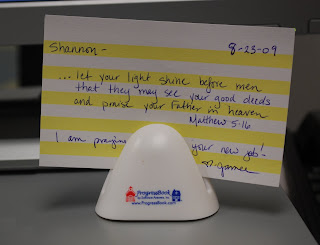 Shannon -
8-23-09
... let your light shine before men
that they may see your good deeds
and praise your Father in heaven.
Matthew 5:16
I am praying your new job!
ProgressBook
www.ProgressBook.com